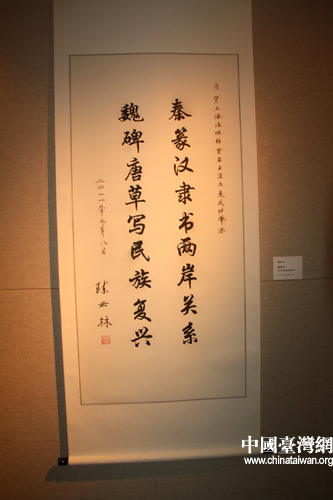 贺上海海峡书法大展成功举办
秦篆汉隶书两岸关系
魏碑唐草写民族复兴
二〇一一年七月八日
陈云林
中國臺灣網
www.chinataiwan.org